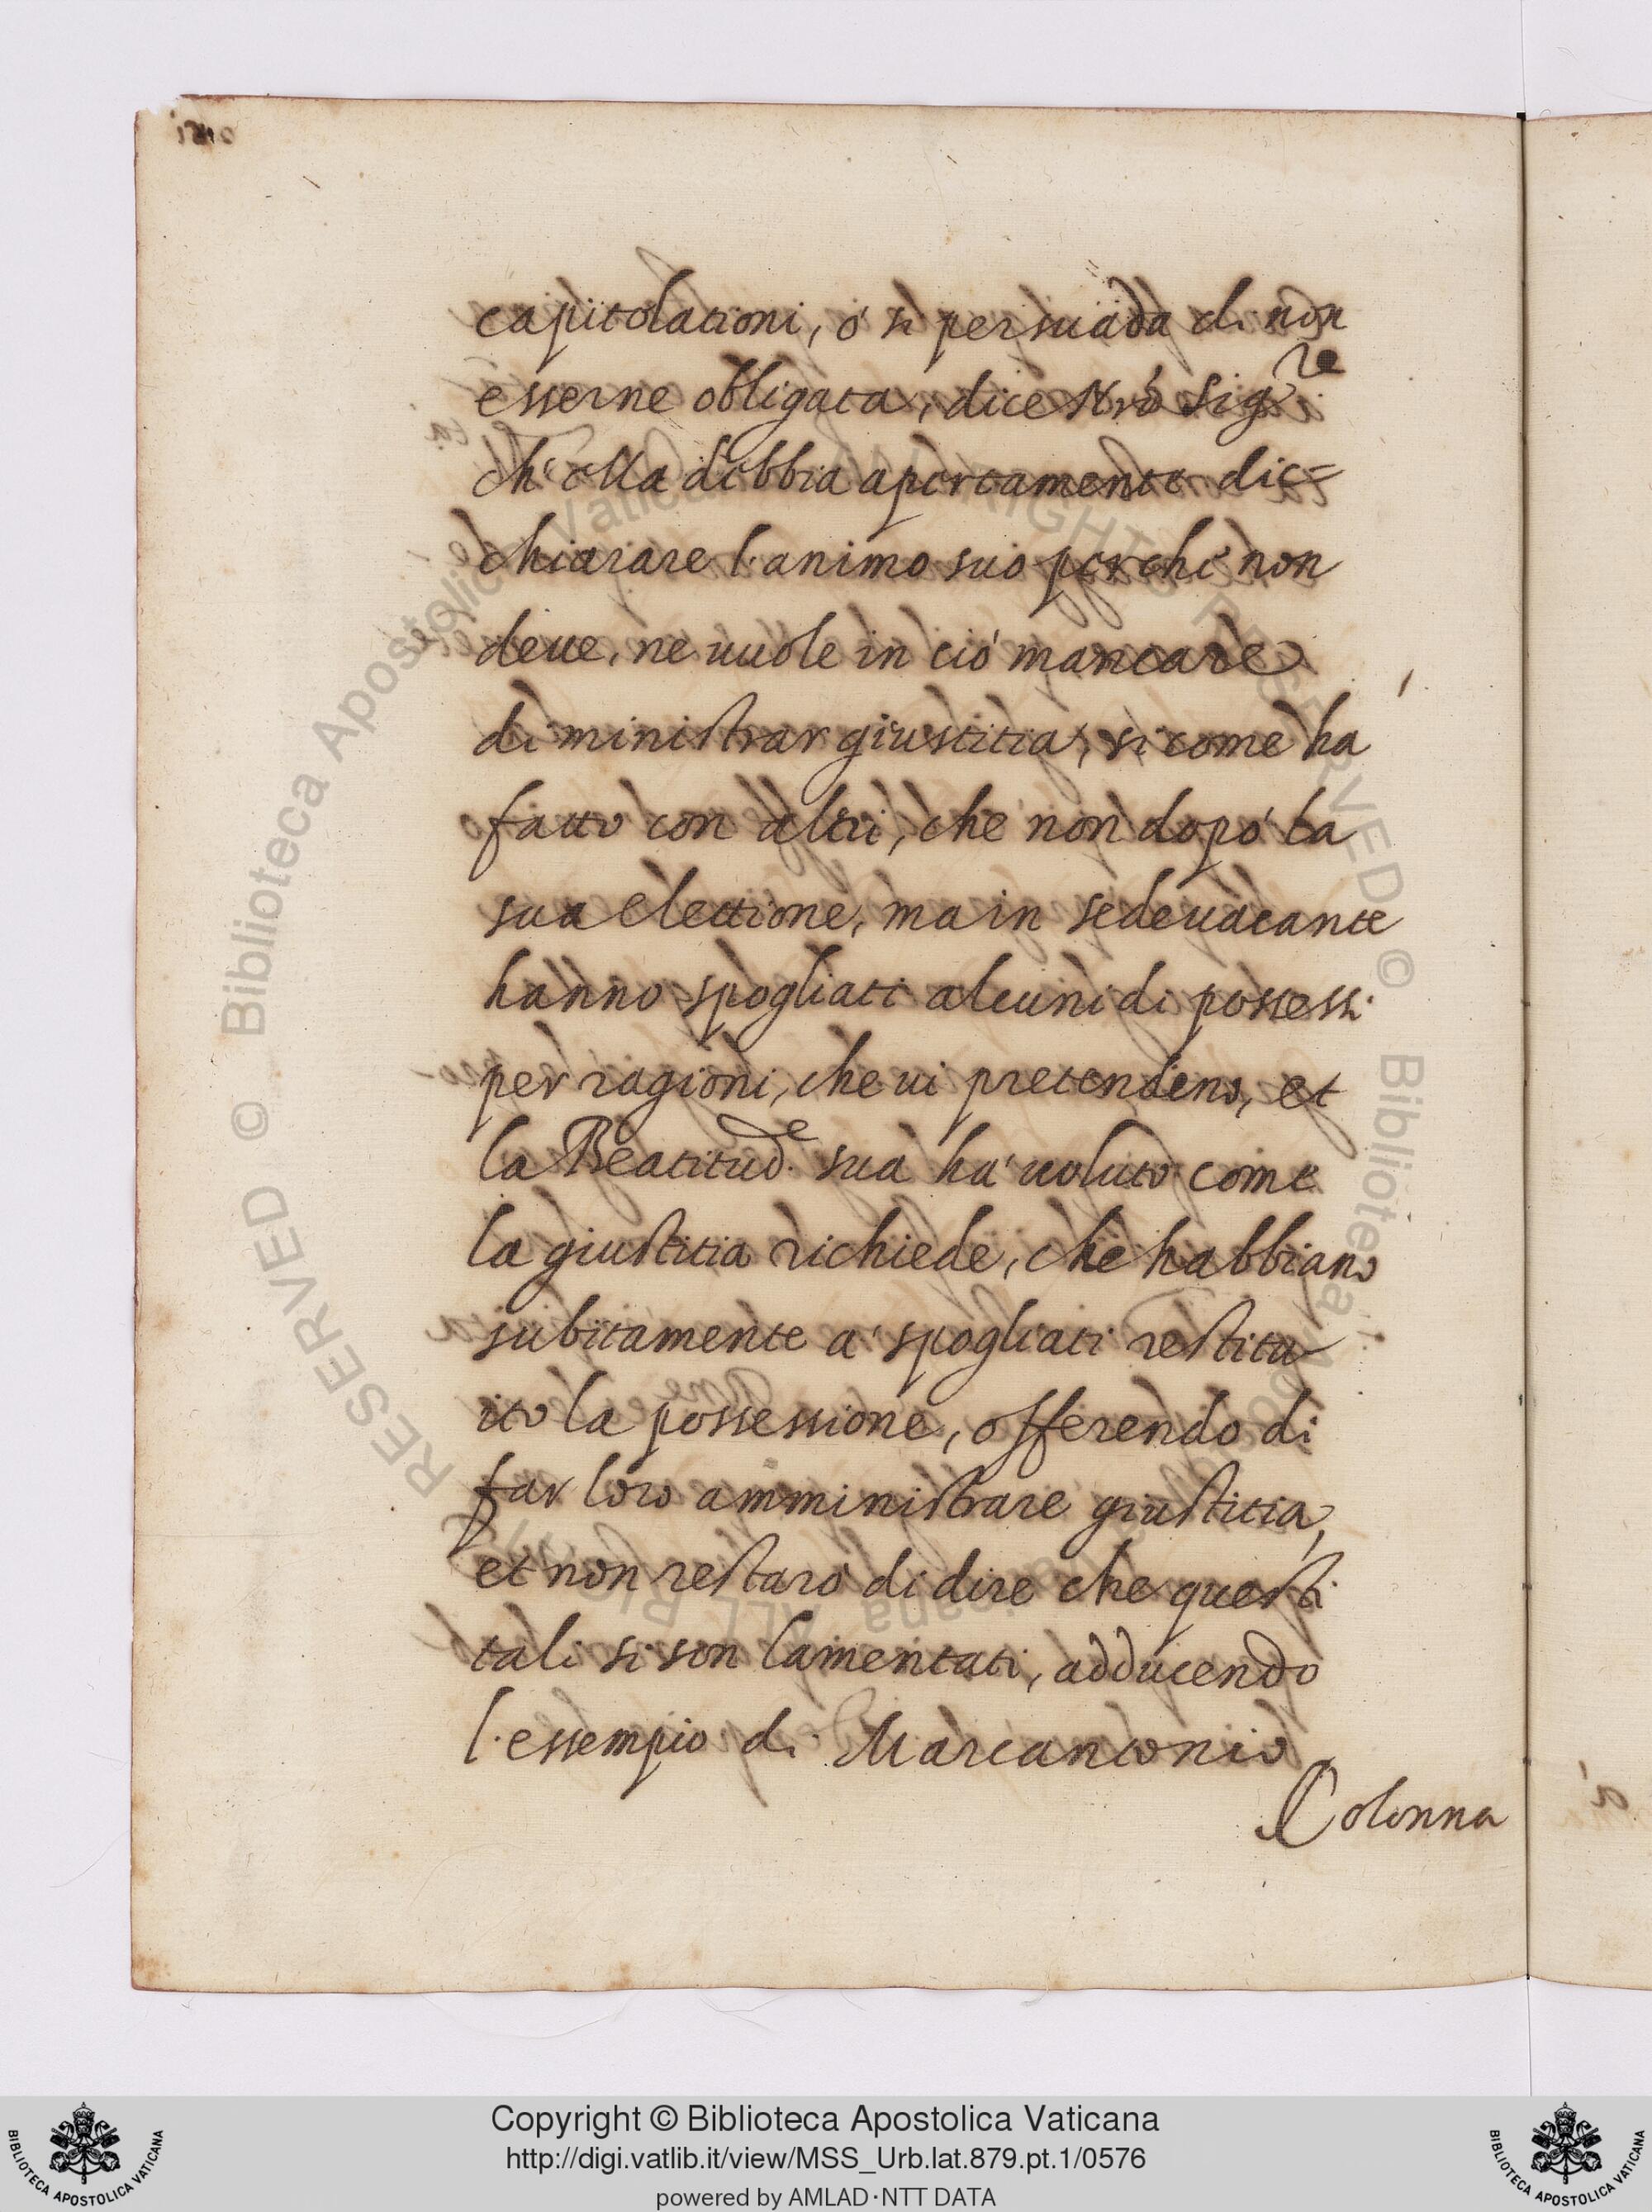 capitolationi, ó si persuada di non
esserne obligata, dice Nrõ Sig.re
ch'ella debbia apertamente dic=
chiarare l'animo suo perche non
deue, ne uuole in ció mancare
di ministrar giustitia, si come ha
fatto con altri, che non dopó la
sua elettione, ma in sede uacante
hanno spogliati alcuni di possessi
per ragioni, che ui pretendeno, et
la Beatitud.e sua ha' uoluto come
la giustitia richiede, che habbiano
subitamente a' spogliati restitu
ito la possessione, offerendo di
far loro amministrare giustitia,
et non restaró di dire che questi
tali si son lamentati, adducendo
l'essempio di Marcantonio
Colonna
© Biblioteca Apostolica Vaticana ALL RIGHTS RESERVED © Biblioteca Apostolica Vaticana ALL RIGHTS RESERVED
Copyright © Biblioteca Apostolica Vaticana
http://digi.vatlib.it/view/MSS_Urb.lat.879.pt.1/0576
powered by AMLAD·NTT DATA
BIBLIOTECA APOSTOLICA VATICANA
BIBLIOTECA APOSTOLICA VATICANA